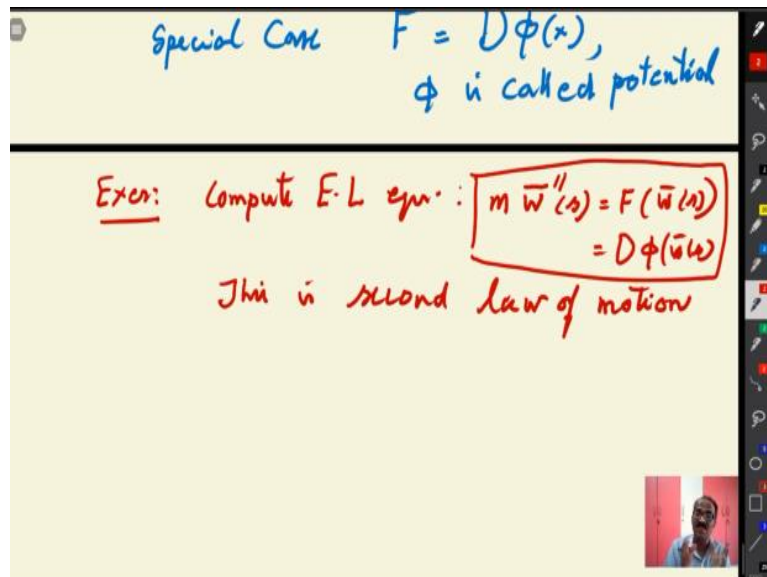 Special Case F = Dϕ(x),
ϕ is called potential
Exer: Compute E-L eqn. : m w̄''(s) = F(w̄(s))
= Dϕ(w̄(s)
This is second law of motion